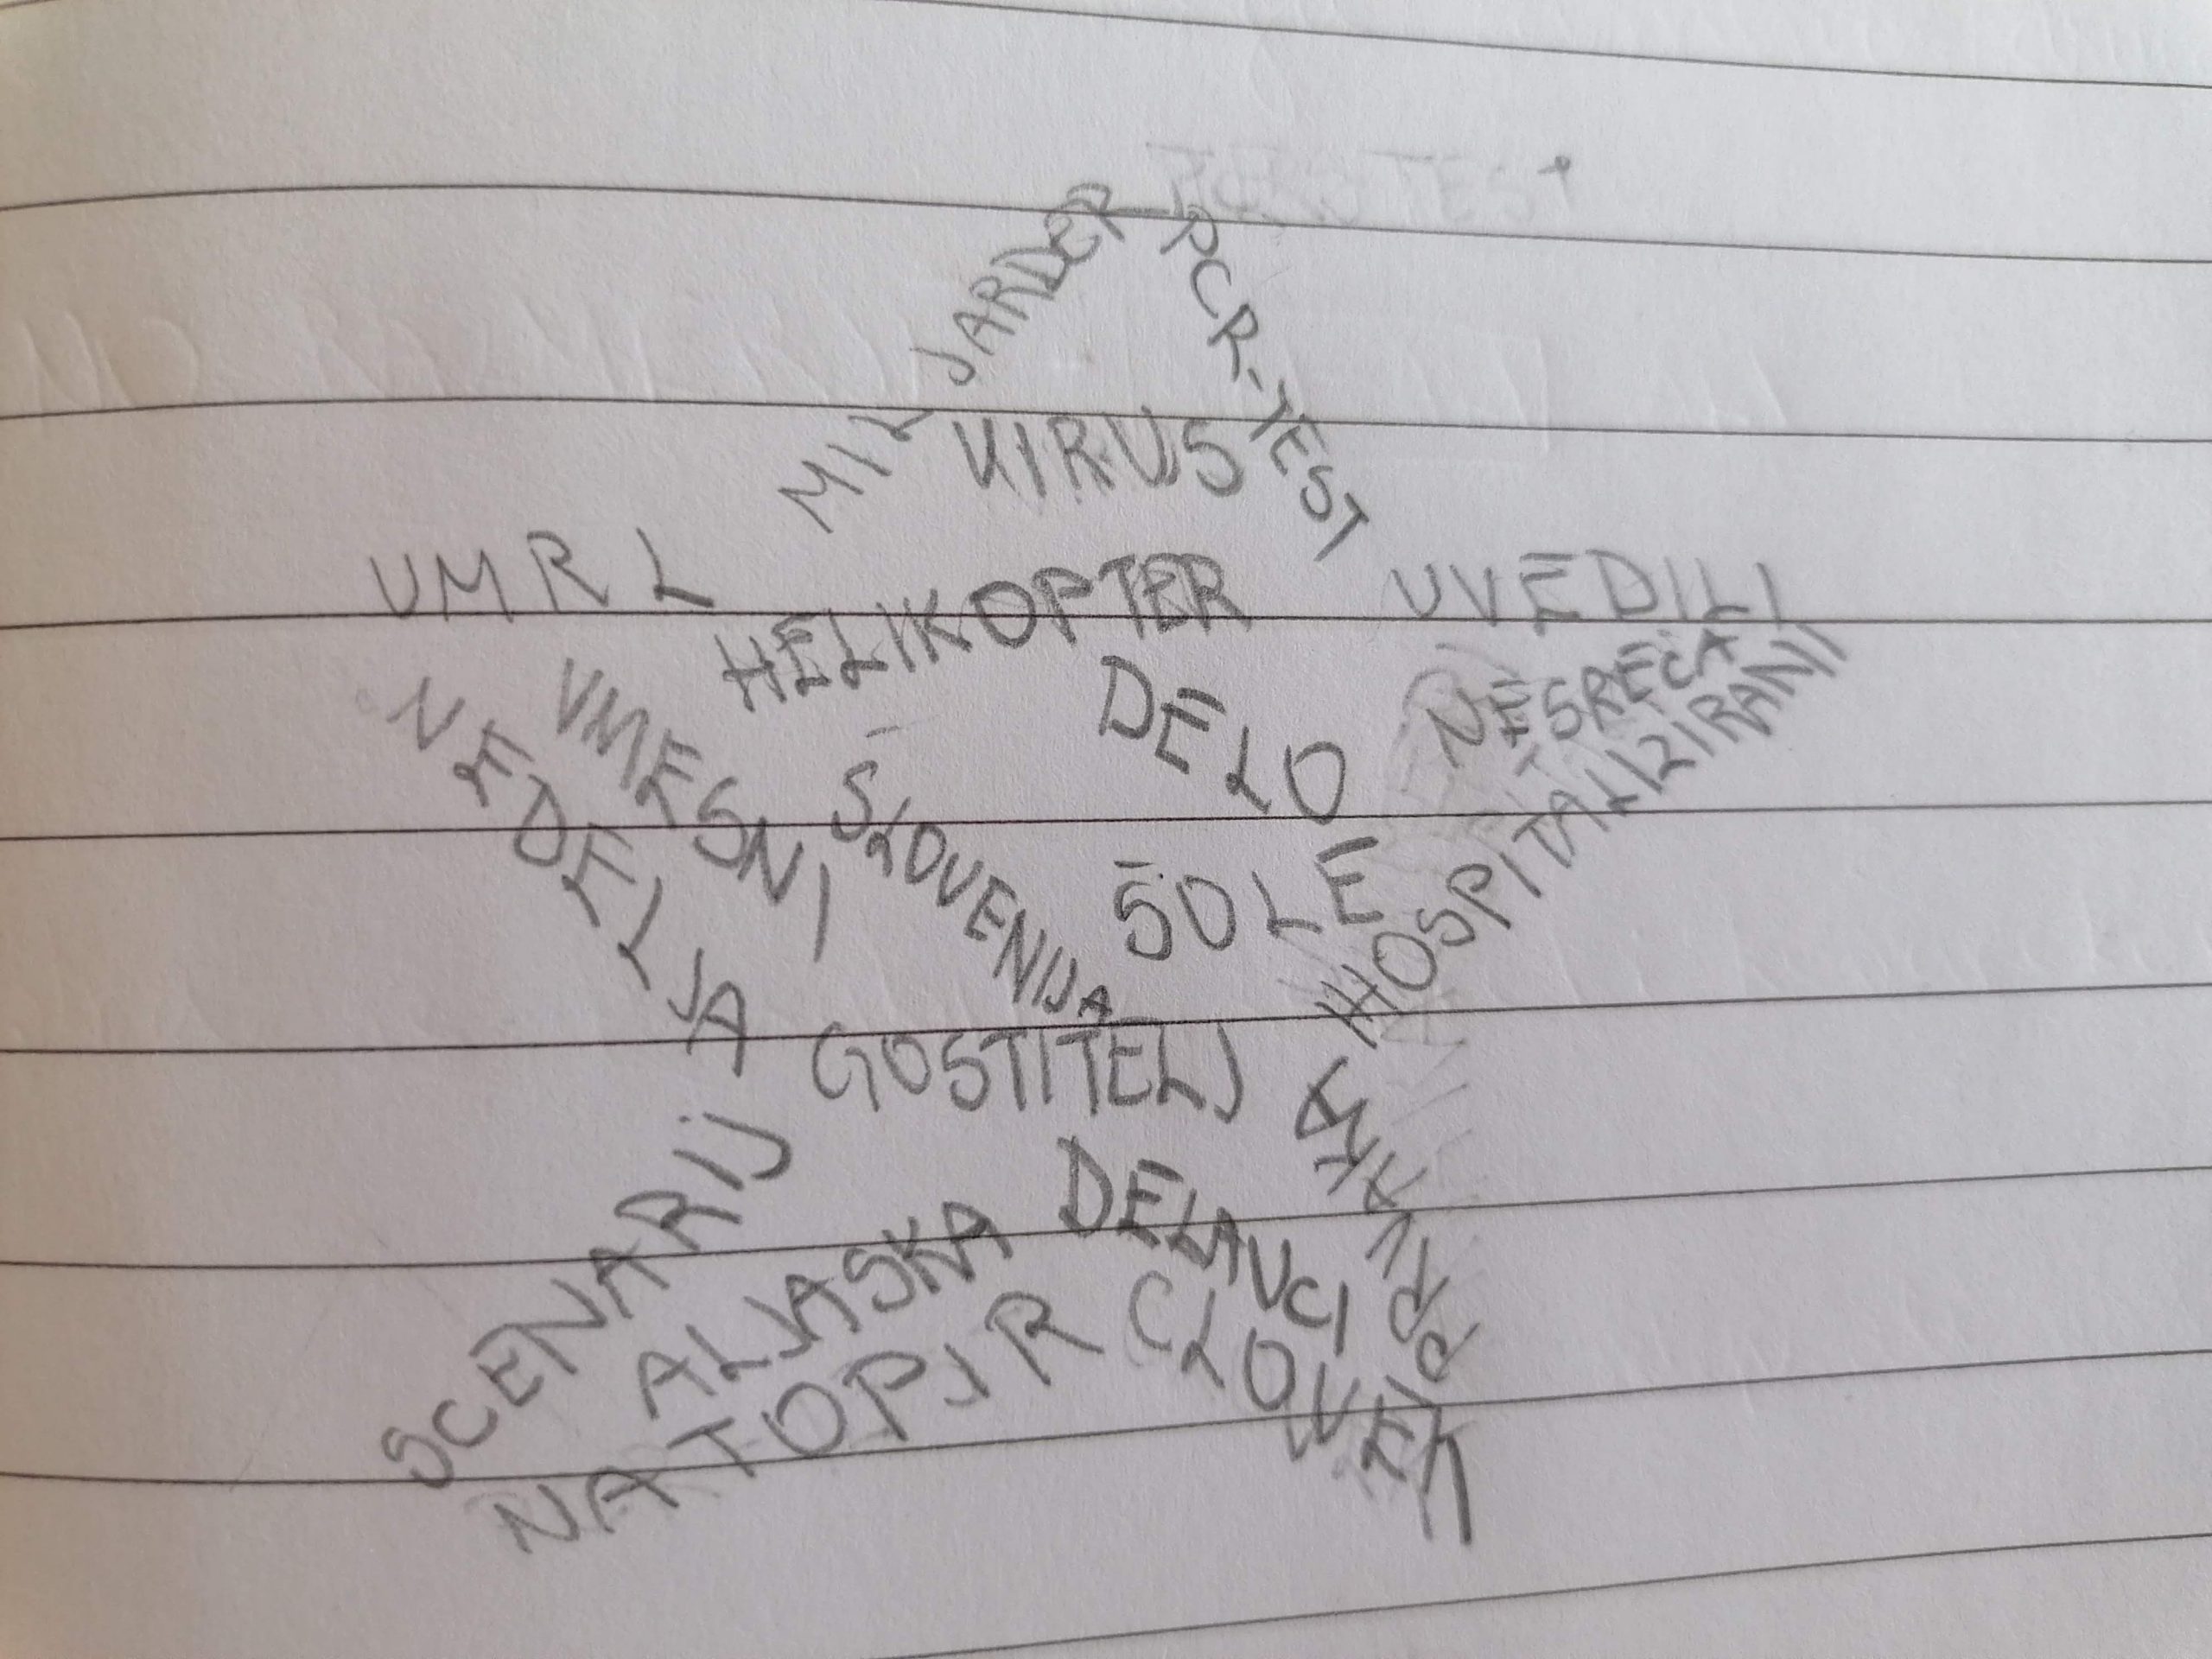 MILJARDER
PCR-TEST
VIRUS
UMRL
HELIKOPTER
UVEDILI
DELO
NESREČA
HOSPITALIZIRANI
VMESNI
NEDELJA
SLOVENIJA
ŠOLE
GOSTITELJ
SCENARIJ
ALJASKA
DELAVCI
NATOPIR
CLOVEK